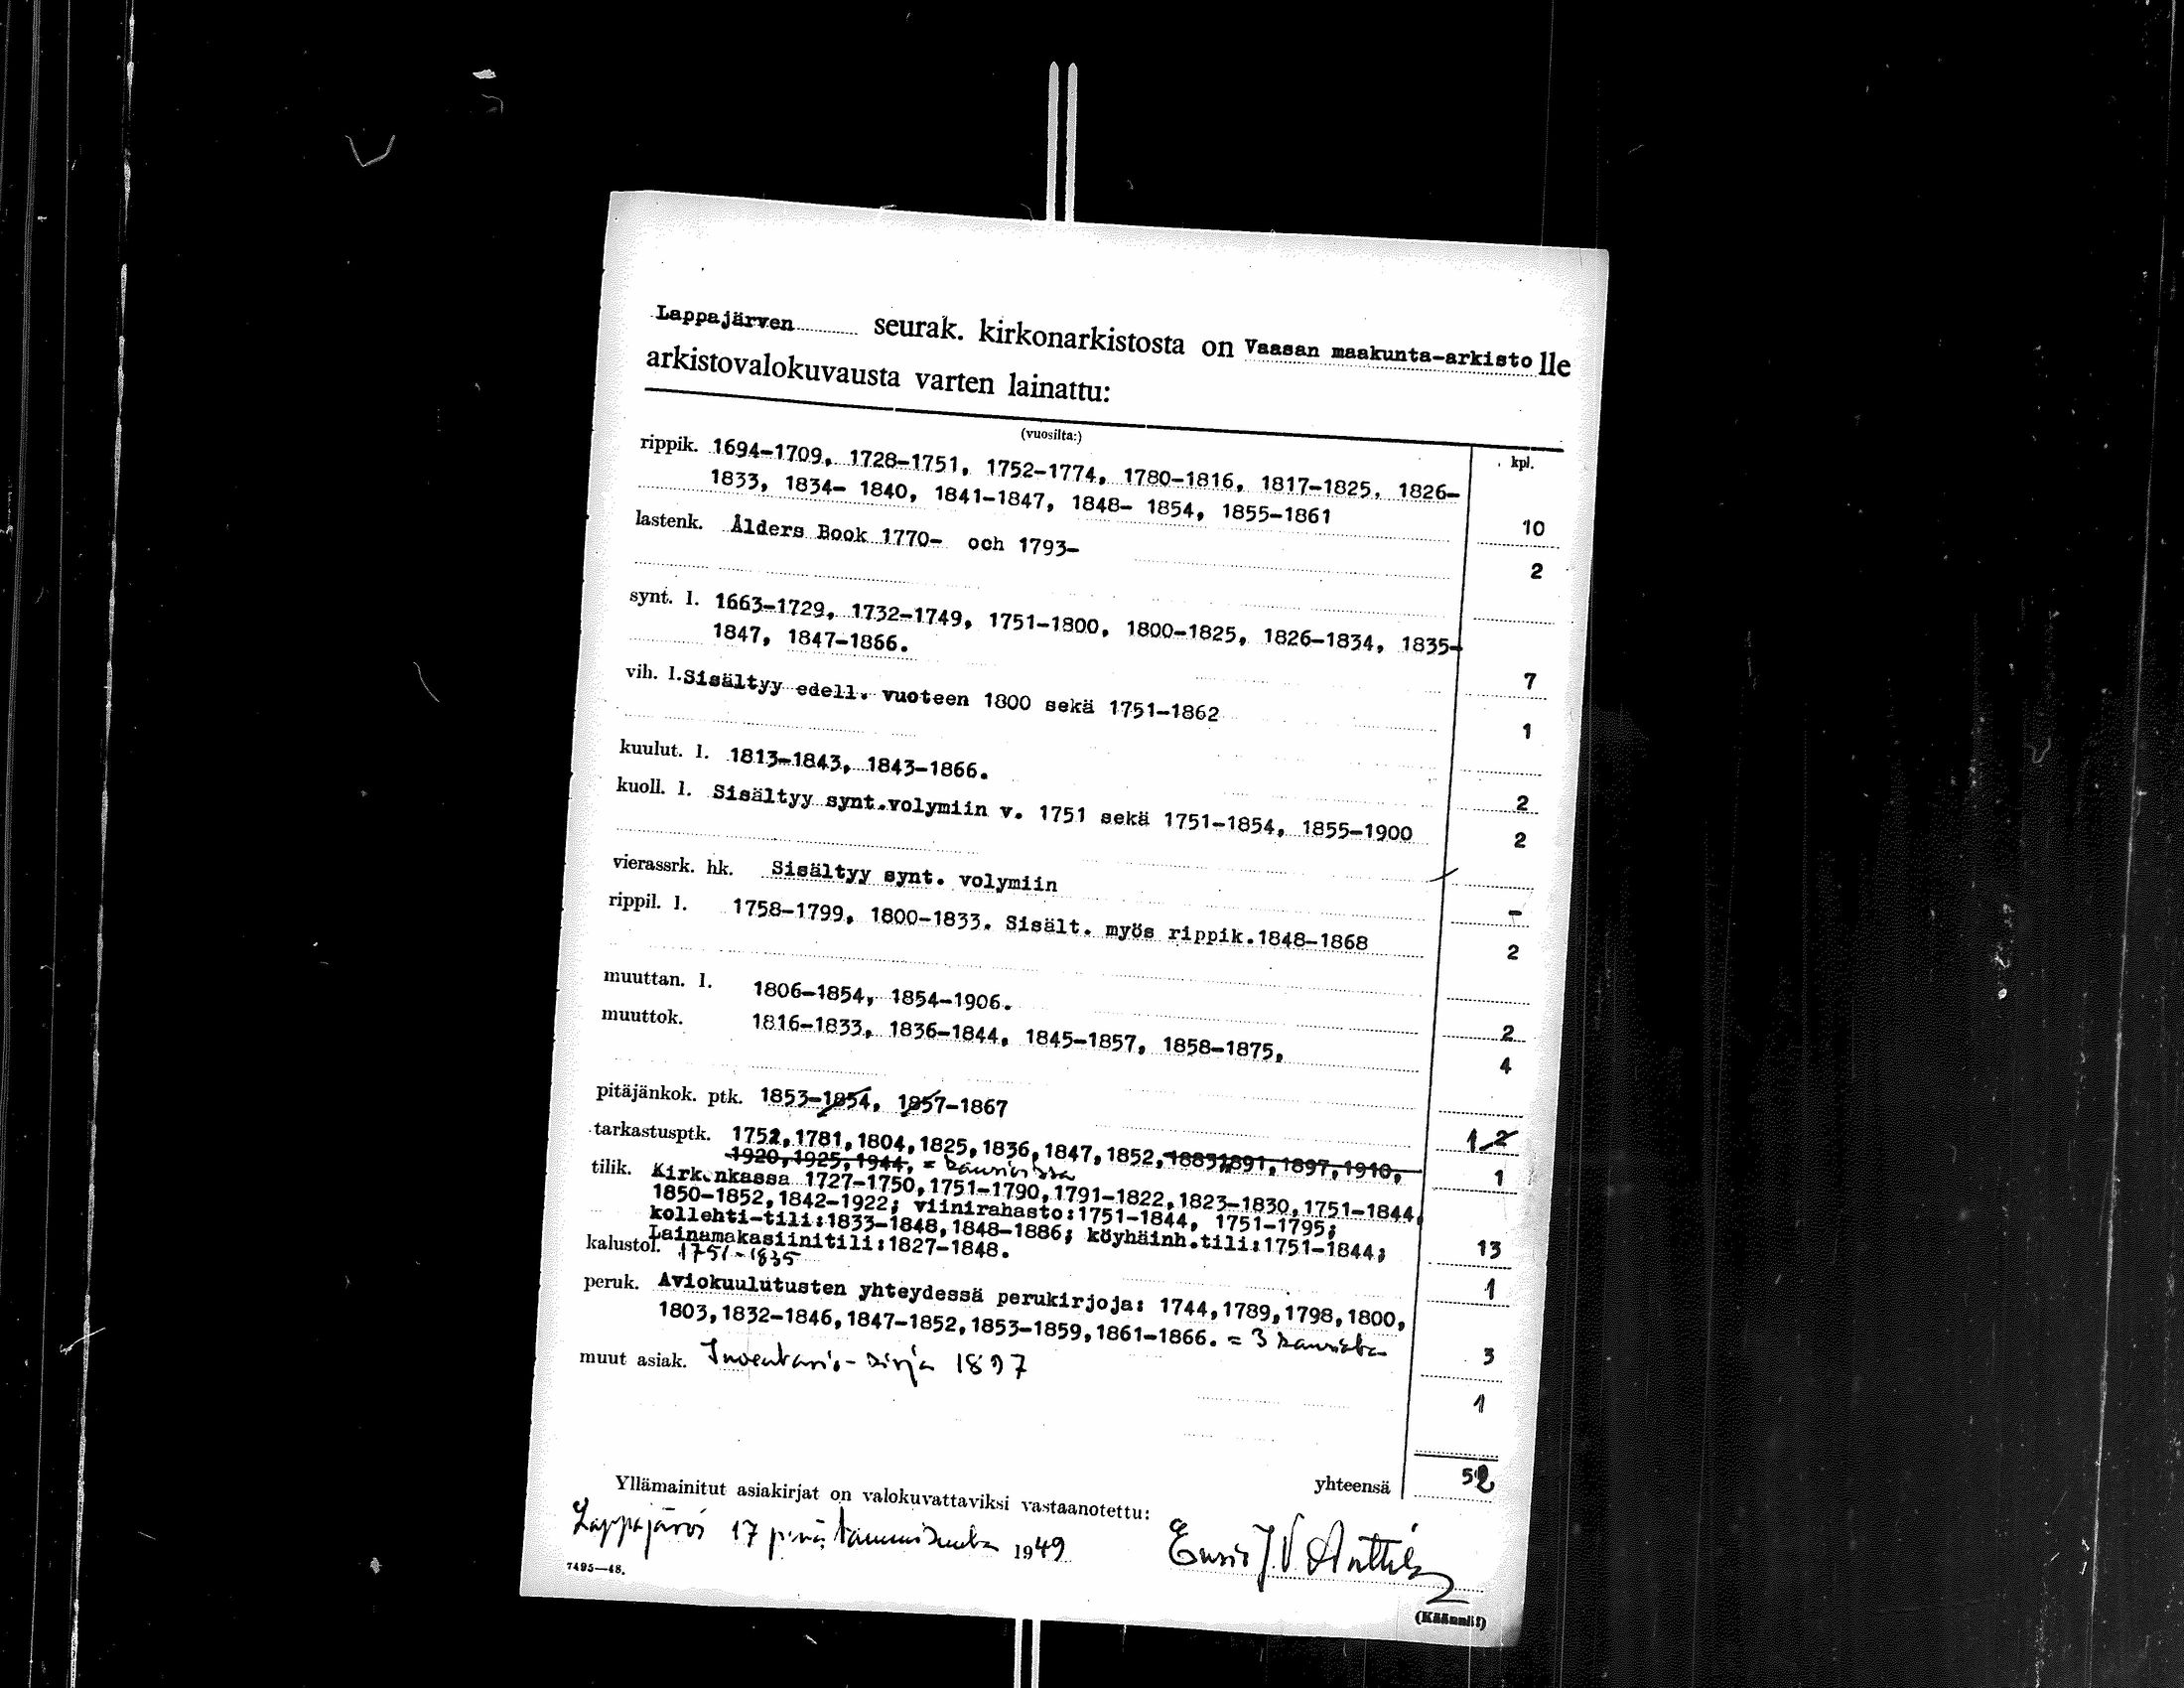 Lappajärven seurak. kirkonarkistosta on Vaasan maakunta-arkisto lle
arkistovalokuvausta varten lainattu:
(vuosilta:)
kpl.
rippik. 1694-1709, 1728-1751, 1752-1774, 1780-1816, 1817-1825, 1826-
1833, 1834- 1840, 1841-1847, 1848- 1854, 1855-1861 10
lastenk. Ålders Book 1770- och 1793- 2
synt. l. 1663-1729, 1732-1749, 1751-1800, 1800-1825, 1826-1834, 1835-
1847, 1847-1866. 7
vih. l. Sisältyy edell. vuoteen 1800 sekä 1751-1862 1
kuulut. l. 1813-1843, 1843-1866. 2
kuoll. l. Sisältyy synt.volymiin v. 1751 sekä 1751-1854, 1855-1900 2
vierassrk. hk. Sisältyy synt. volymiin -
rippil. l. 1758-1799, 1800-1833. Sisält. myös rippik.1848-1868 2
muuttan. l. 1806-1854, 1854-1906. 2
muuttok. 1816-1833, 1836-1844, 1845-1857, 1858-1875, 4
pitäjänkok. ptk. 1853-1854, 1857-1867 1 2
tarkastusptk. 1752,1781,1804,1825,1836,1847,1852,1885,1891,1897,1910,
1920,1925,1944, = kansiossa 1
tilik. Kirkonkassa 1727-1750,1751-1790,1791-1822,1823-1830,1751-1844,
1850-1852,1842-1922; viinirahasto:1751-1844, 1751-1795;
kollehti-tili:1833-1848,1848-1886; köyhäinh.tili:1751-1844;
Lainamakasiinitili:1827-1848. 13
kalustol. 1751-1835 1
peruk. Aviokuulutusten yhteydessä perukirjoja: 1744,1789,1798,1800,
1803,1832-1846,1847-1852,1853-1859,1861-1866. = 3 kansiota 3
muut asiak. Inventario-kirja 1897 1
yhteensä 52
Yllämainitut asiakirjat on valokuvattaviksi vastaanotettu:
Lappajärvi 17 p:nä tammikuuta 1949
J.V. Anttila
7495—48.
(Käännä!)